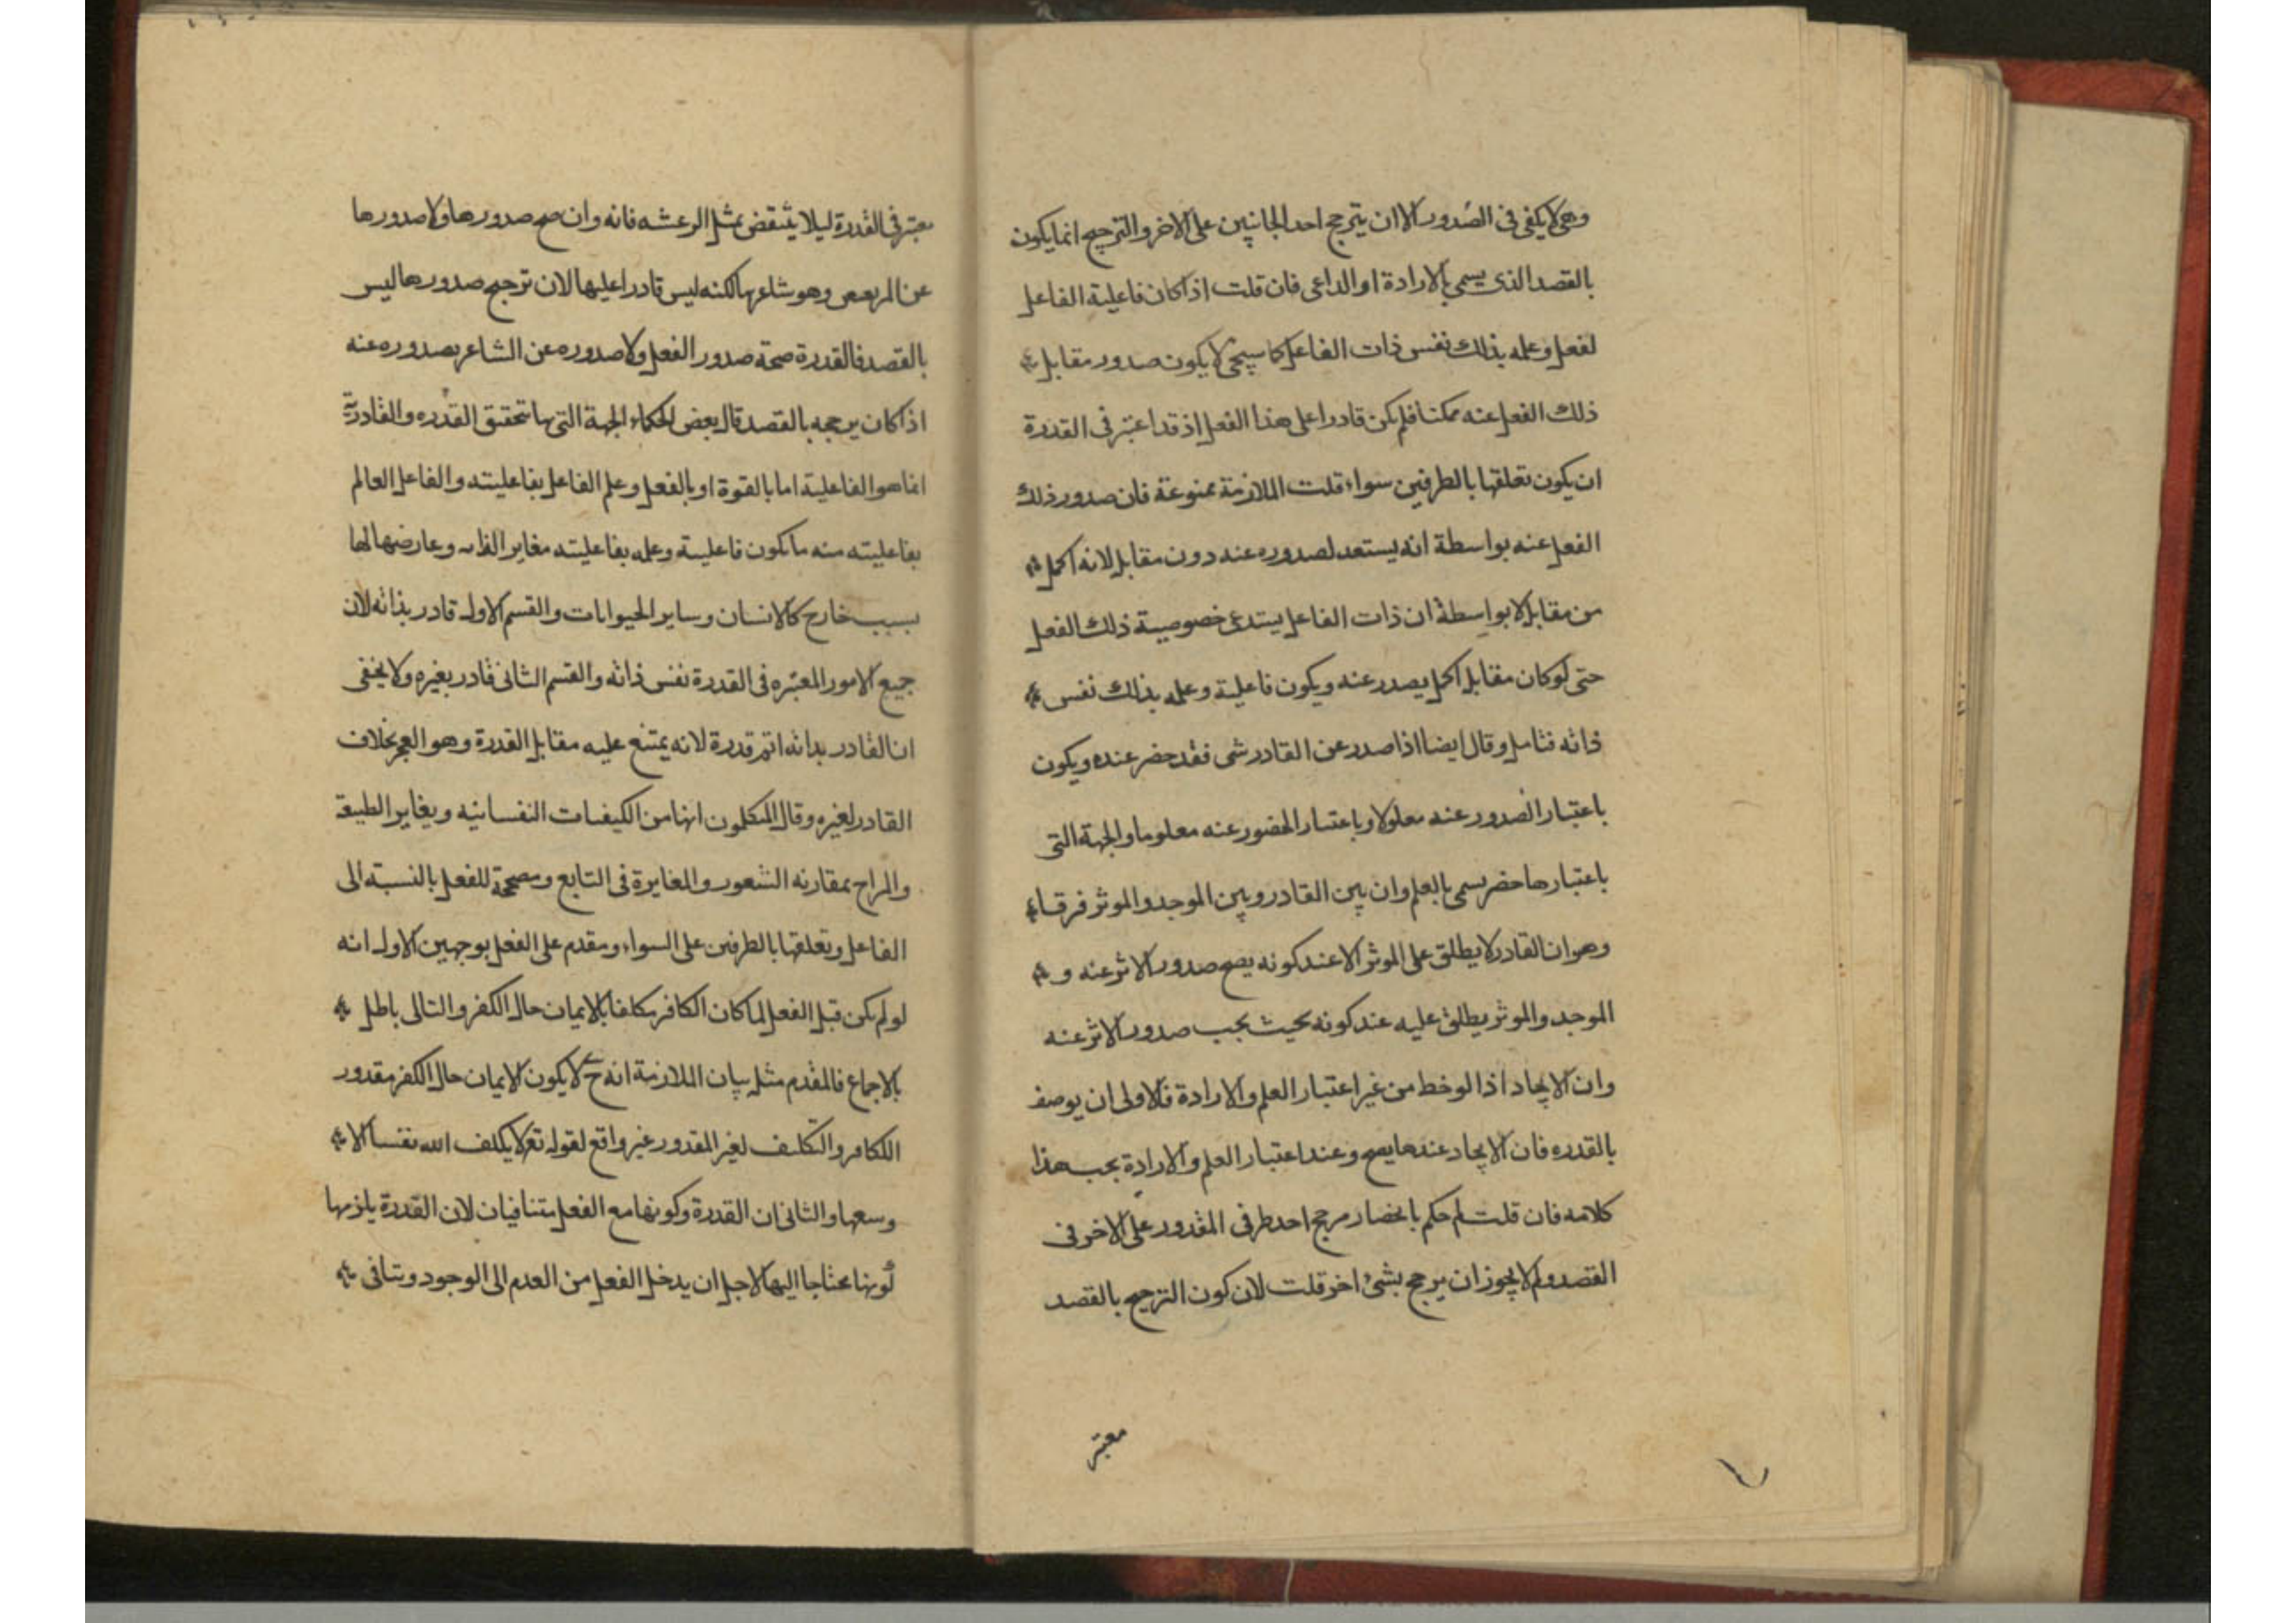 وهى لا يكفى فى الصدور الا ان يترجح احد الجانبين على الاخر والترجيح انما يكون
بالقصد الذى يسمى بالارادة او الداعى فان قلت اذا كان فاعلية الفاعل
لفعل وعلمه بذلك نفس ذات الفاعل كما سيجئ لا يكون صدور مقابل
ذلك الفعل عنه ممكنا فلم يكن قادرا على هذا الفعل اذ قد اعتبر فى القدرة
ان يكون تعلقها بالطرفين سواء قلت الملازمة ممنوعة فان صدور ذلك
الفعل عنه بواسطة انه يستعد لصدوره عنه دون مقابل لانه اكمل
من مقابل لا بواسطة ان ذات الفاعل يستدعى خصوصية ذلك الفعل
حتى لو كان مقابل اكمل يصدر عنه ويكون فاعلية وعلمه بذلك نفس
ذاته فتامل وقال ايضا اذا صدر عن القادر شى فقد حضر عنده ويكون
باعتبار الصدور عنه معلولا وباعتبار الحضور عنه معلوما والجهة التى
باعتبارها حضر يسمى بالعلم وان بين القادر وبين الموجد والموثر فرقا
وهو ان القادر لا يطلق على الموثر الا عند كونه يصح صدور الاثر عنه و
الموجد والموثر يطلق عليه عند كونه بحيث يجب صدور الاثر عنه
وان الايجاد اذا لوخط من غير اعتبار العلم والارادة فالاولى ان يوصف
بالقدره فان الايجاد عندها يصح وعند اعتبار العلم والارادة يجب هذا
كلامه فان قلت لم حكم بانحصار مرجح احد طرفى المقدور على الاخر فى
القصد ولم لا يجوز ان يرجح بشئ اخر قلت لان كون الترجيح بالقصد
معتبر
معتبر فى القدرة ليلا ينتقض بمثل الرعشه فانه وان صح صدورها ولا صدورها
عن المرتعص وهو شاعر بها لكنه ليس قادرا عليها لان ترجيح صدورها ليس
بالقصد فالقدرة صحة صدور الفعل ولا صدوره عن الشاعر بصدوره عنه
اذا كان يرجحه بالقصد قال بعض الحكماء الجهة التى بها تتحقق القدره والقادرية
انما هو الفاعلية اما بالقوة او بالفعل وعلم الفاعل بفاعليته والفاعل العالم
بفاعليته منه ما تكون فاعليته وعلمه بفاعليته مغاير الذاته وعارضها لها
بسبب خارج كالانسان وساير الحيوانات والقسم الاول قادر بذاته لان
جميع الامور المعتبره فى القدرة نفس ذاته والقسم الثانى قادر بغيره ولا يخفى
ان القادر بذاته اتم قدرة لانه يمتنع عليه مقابل القدرة وهو العجز بخلاف
القادر لغيره وقال المتكلمون انها من الكيفيات النفسانيه ويغاير الطبيعة
والمزاج بمقارنه الشعور والمغايرة فى التابع ومصححة للفعل بالنسبة الى
الفاعل وتعلقها بالطرفين على السواء ومقدم على الفعل بوجهين الاول انه
لو لم يكن قبل الفعل لما كان الكافر مكلفا بالايمان حال الكفر والتالى باطل
بالاجماع فالمقدم مثله بيان الملازمة انه ح لا يكون الايمان حال الكفر مقدور
اللكافر والتكليف لغير المقدور غير واقع لقوله تع لا يكلف الله نفسا الا
وسعها والثانى ان القدرة وكونها مع الفعل متنافيان لان القدرة يلزمها
كونها محتاجا اليها لاجل ان يدخل الفعل من العدم الى الوجود وتنافى